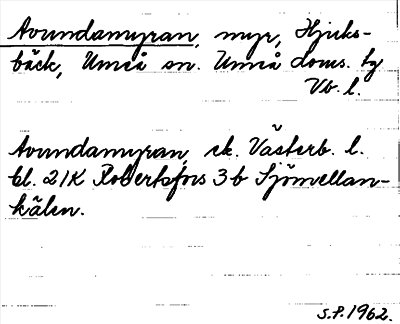 Avundamyran, myr, Hjuks-
bäck, Umeå sn. Umeå Doms. hg
Vb. l.
Avundamyran, ek. Västerb. l.
bl. 21K Robertsfors 3b Sjömellan-
kälen.
S.P. 1962.